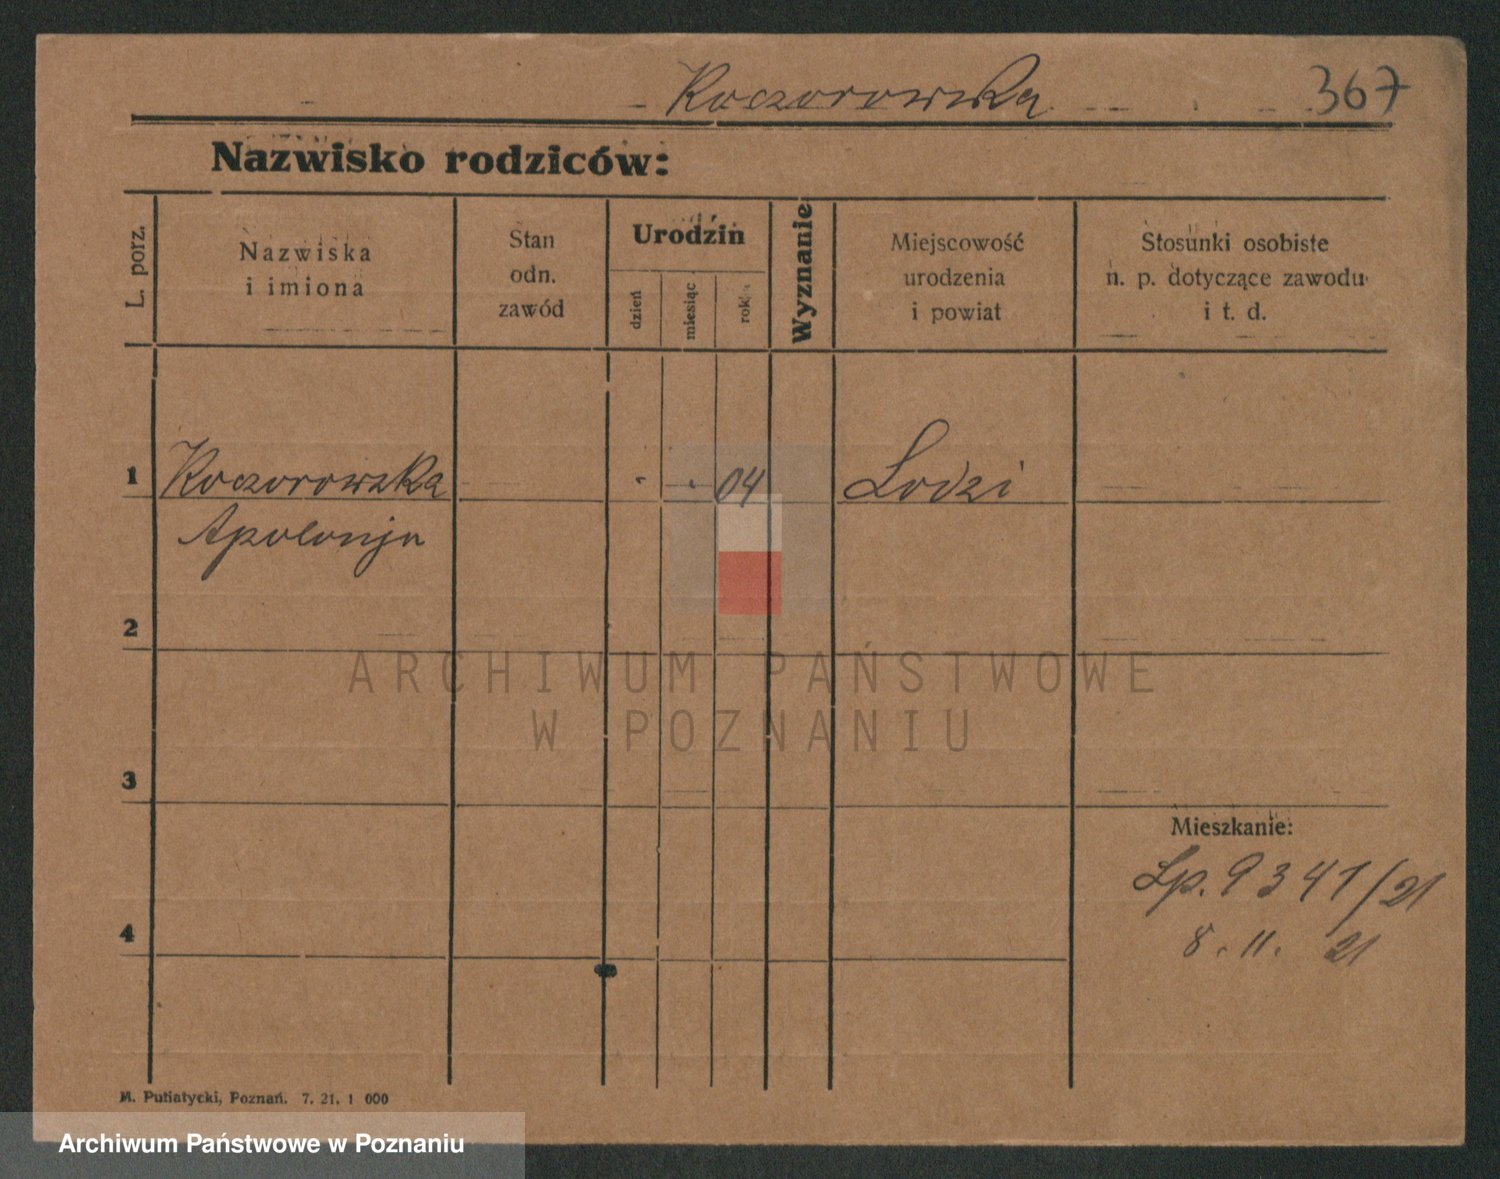 Koczorowska 367
Nazwisko rodziców:
L. porz.
Nazwiska
i imiona
Stan
odn.
zawód
Urodzin
dzień
miesiąc
rok
Wyznanie
Miejscowość
urodzenia
i powiat
Stosunki osobiste
n. p. dotyczące zawodu
i t. d.
1 Koczorowska 04 Lodzi
Apolonja
2
ARCHIWUM PAŃSTWOWE
W POZNANIU
3
Mieszkanie:
Lp. 9341/21
4
8. 11. 21
M. Putiatycki, Poznań. 7. 21. 1 000
Archiwum Państwowe w Poznaniu